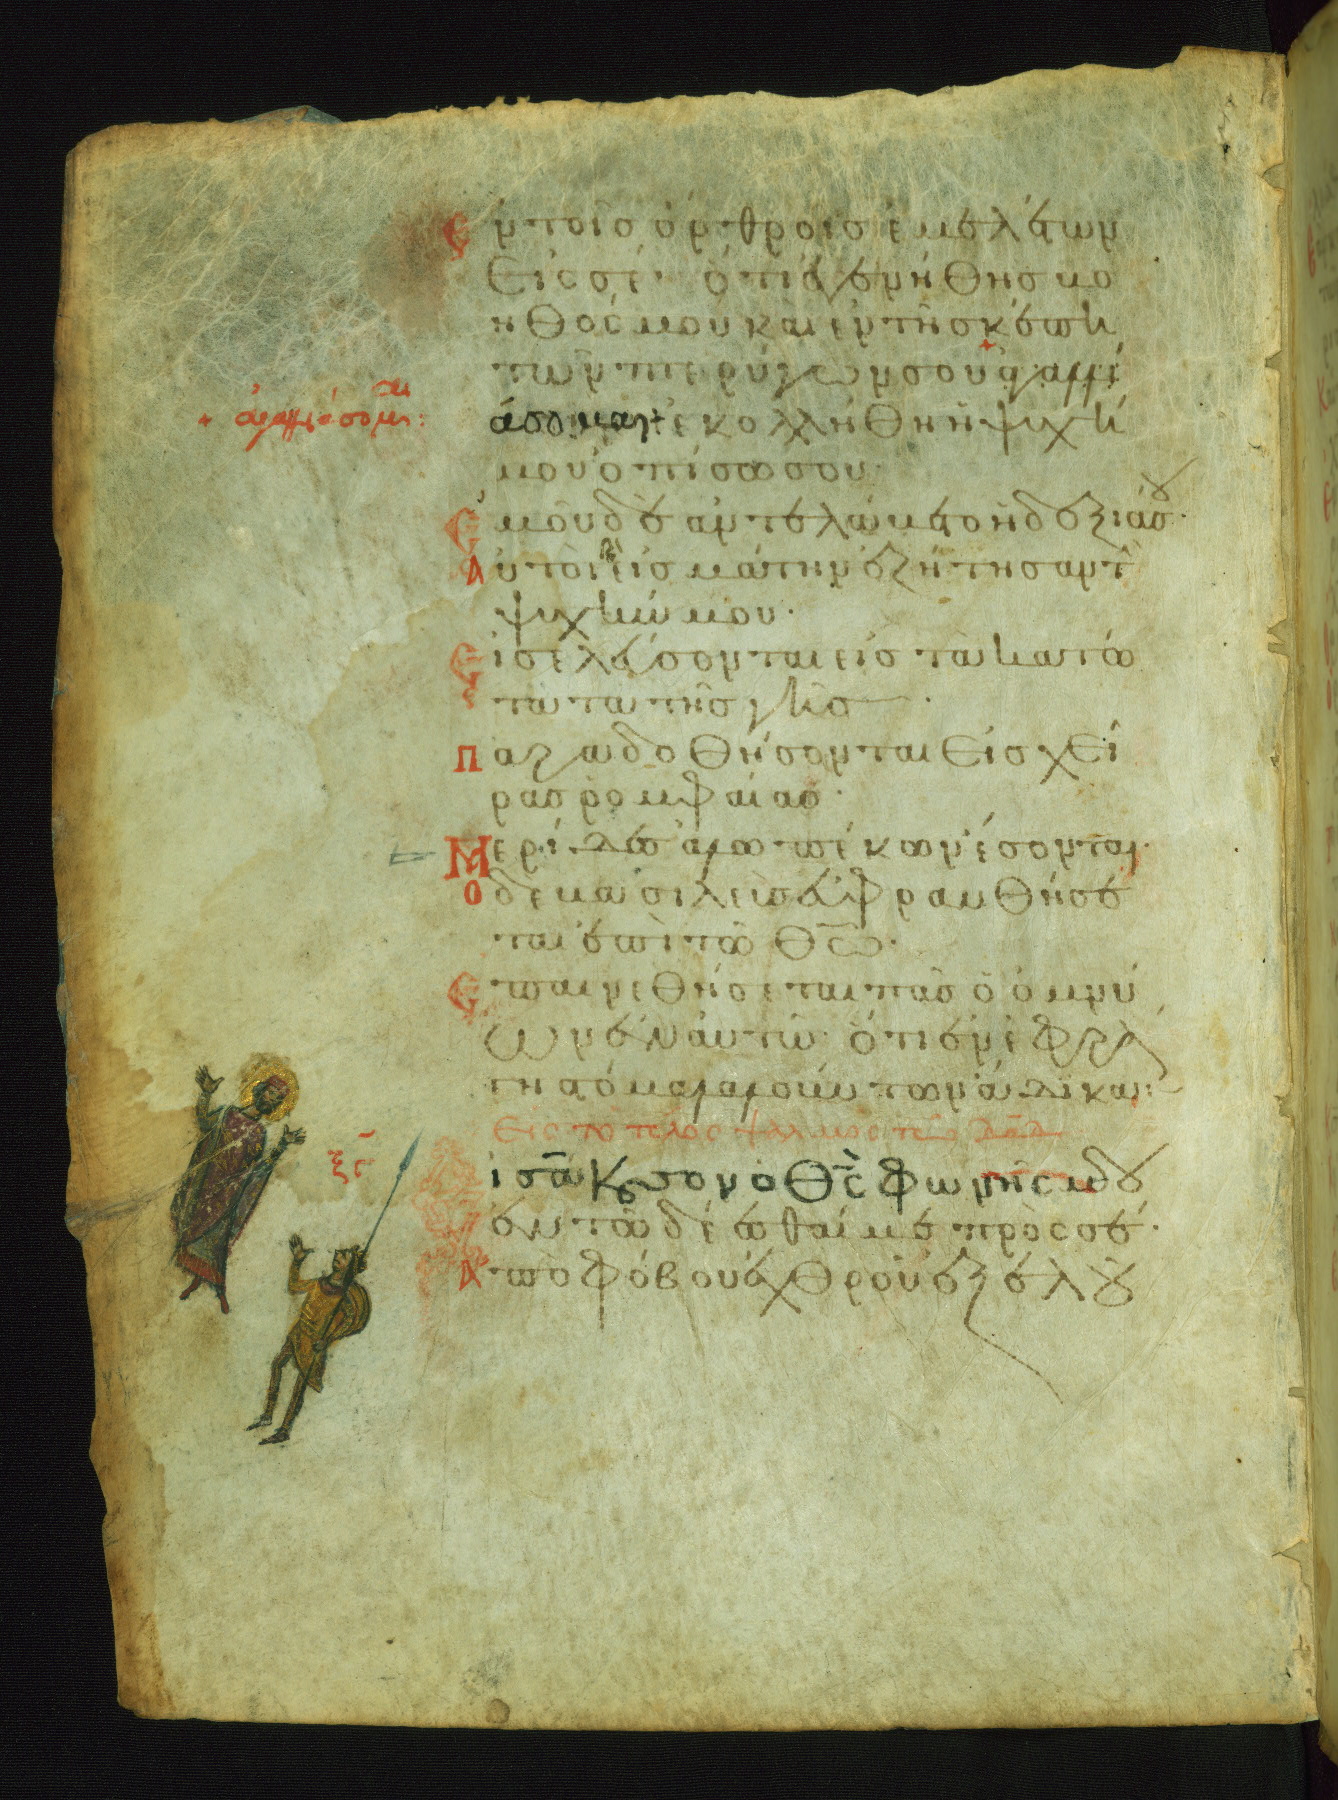 Ἐν τοῖς ὄρθροις ἐμελέτων
εἰς σέ· ὅτι ἐγενήθης βο
ηθός μου καὶ ἐν τῇ σκέπῃ
τῶν πτερύγων σου ἀγαλλι
+ ἀγαλλιάσομαι:
άσομαι + ἐκολλήθη ἡ ψυχή
μου ὀπίσω σου·
Ἐμοῦ δὲ ἀντελάβετο ἡ δεξιά σου·
Αὐτοὶ δὲ εἰς μάτην ἐζήτησαν τὴν
ψυχήν μου·
Εἰσελεύσονται εἰς τὰ κατώ
τατα τῆς γῆς·
Παραδοθήσονται εἰς χεῖ
ρας ῥομφαίας·
Μερίδες ἀλωπέκων ἔσονται·
Ὁ δὲ βασιλεὺς εὐφρανθήσε
ται ἐπὶ τῷ Θῶ·
Ἐπαινεθήσεται πᾶς ὁ ὀμνύ
ων ἐν αὐτῷ· ὅτι ἐνεφράγη
Εἰς τὸ τέλος ψαλμὸς τῷ Δαδ
ξγ
Εἰσάκουσον ὁ Θς φωνῆς μου
ἐν τῷ δέεσθαί με πρὸς σέ·
Ἀπὸ φόβου ἐχθροῦ ἐξελοῦ